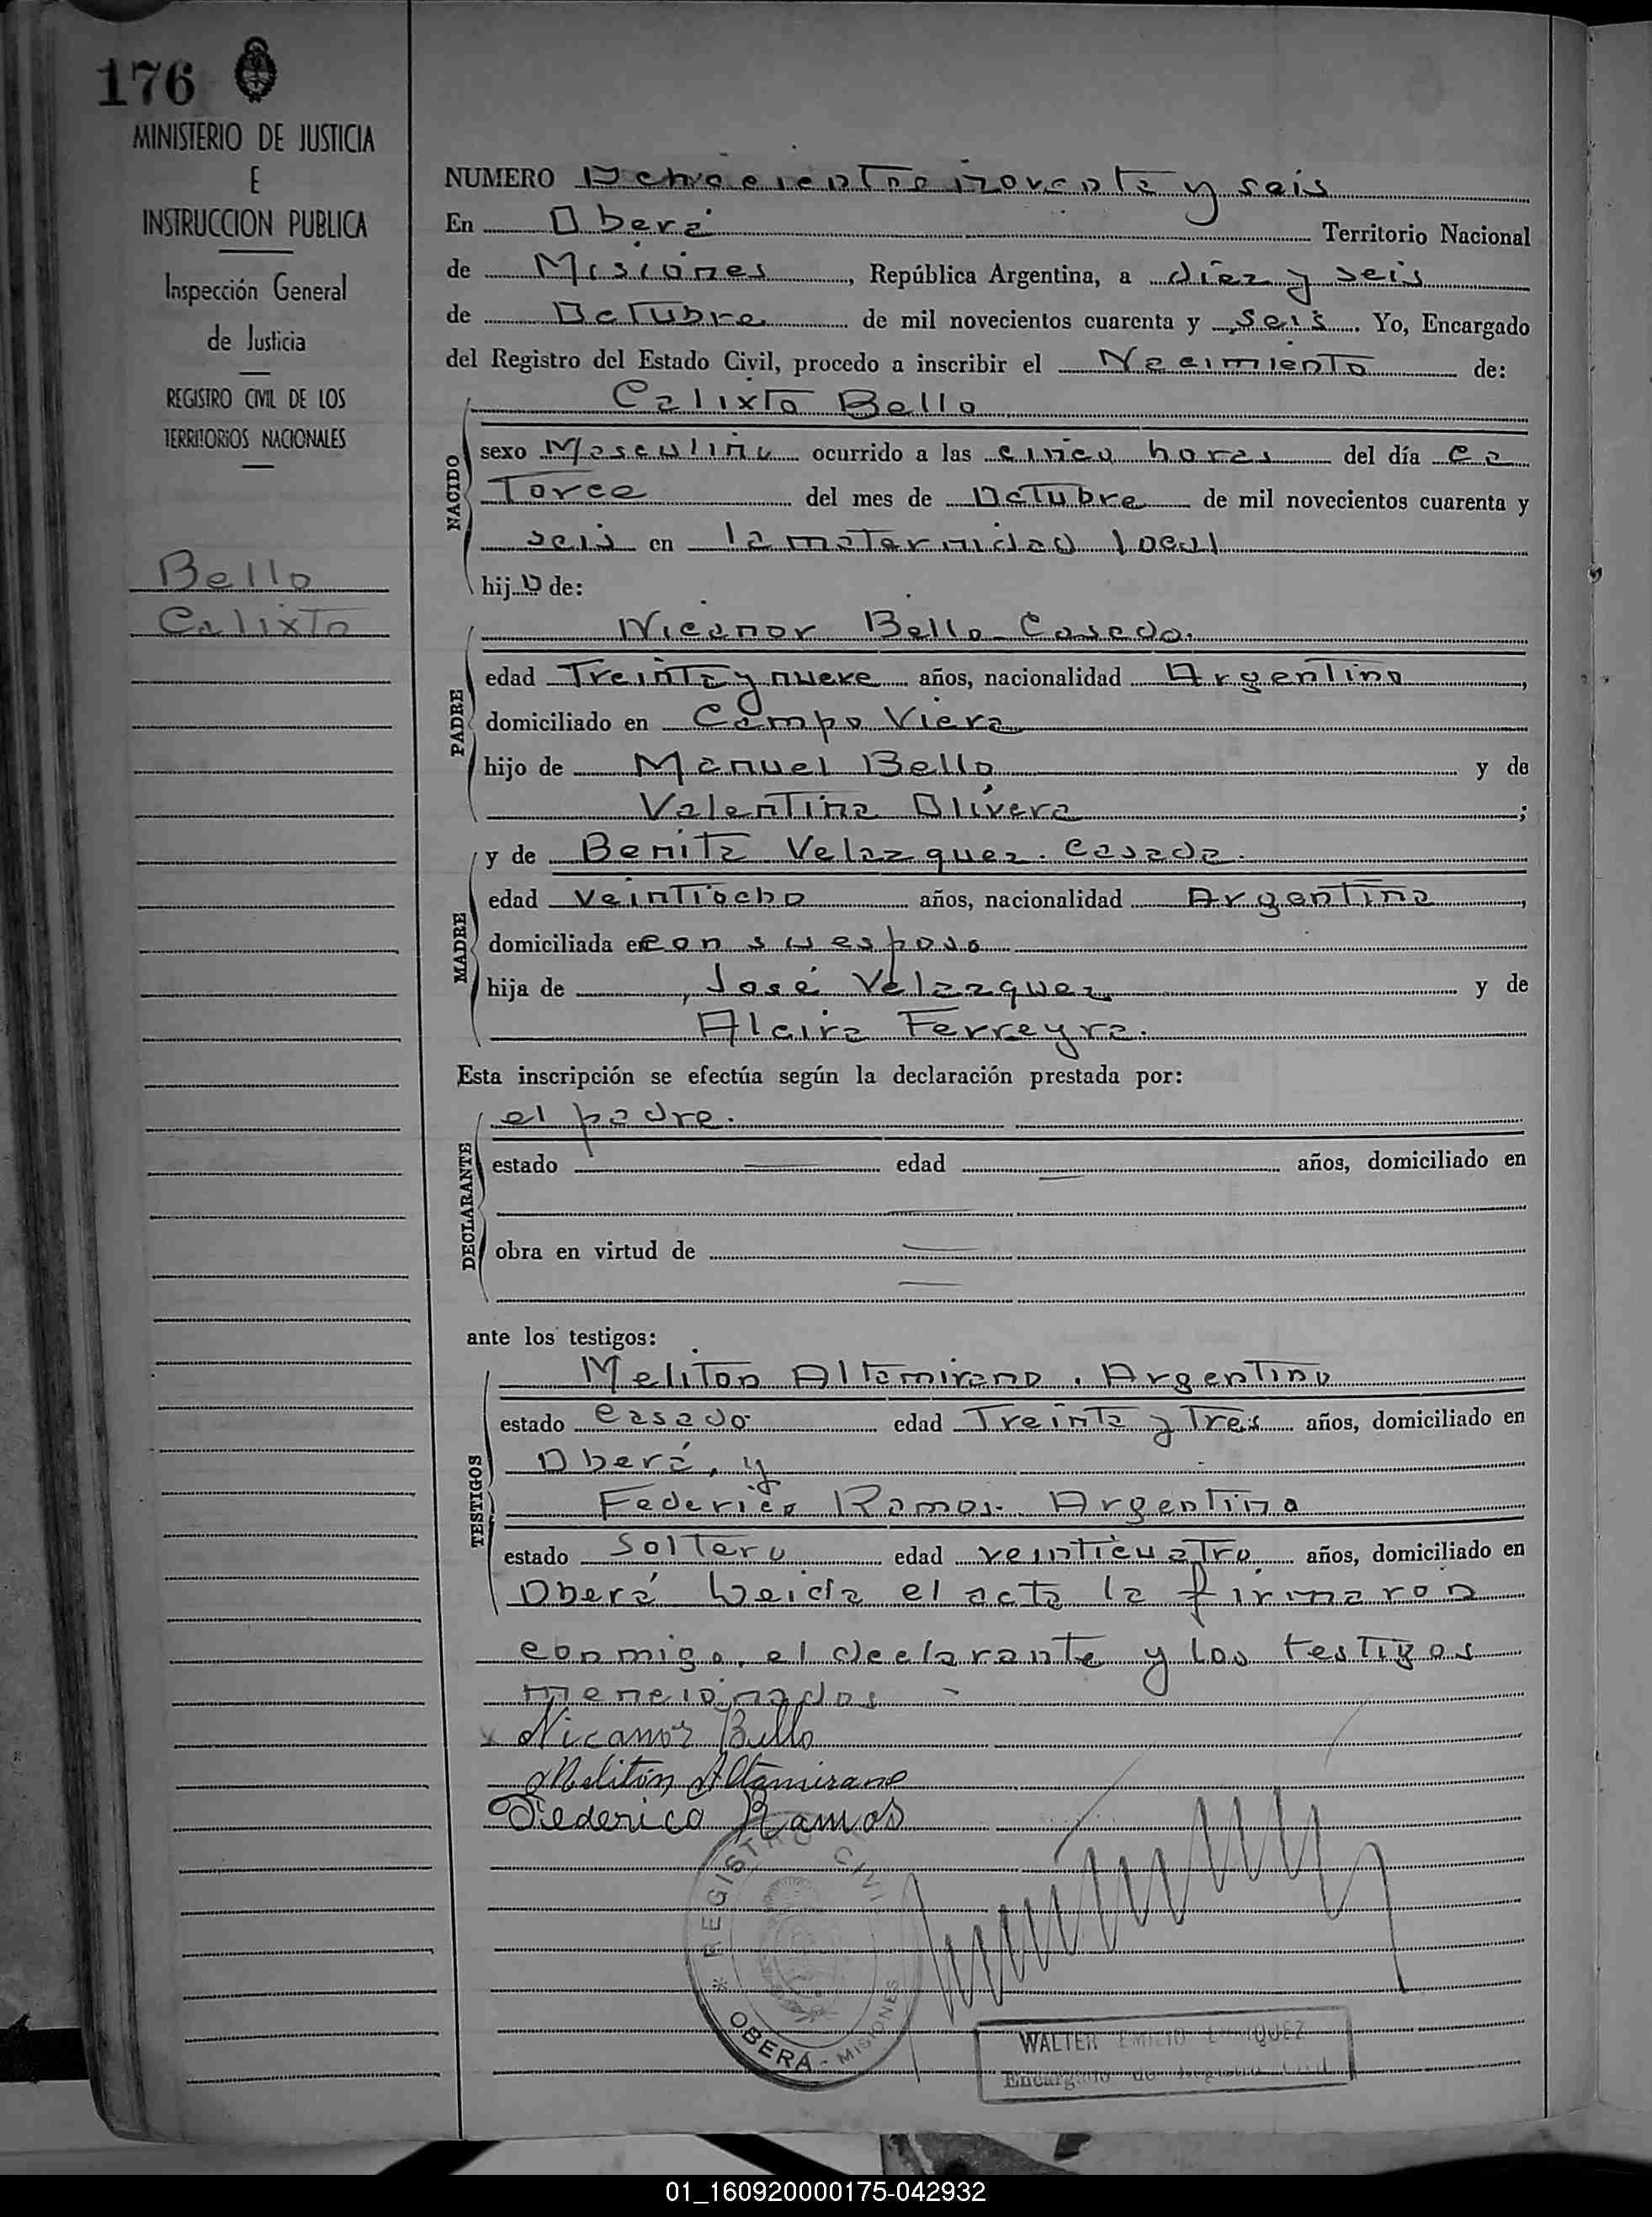 176
MINISTERIO DE JUSTICIA
E
INSTRUCCION PUBLICA
Inspección General
de Justicia
REGISTRO CIVIL DE LOS
TERRITORIOS NACIONALES
Bello
Calixto
NUMERO Ochocientos noventa y seis
En Oberá Territorio Nacional
de Misiones, República Argentina, a diez y seis
de Octubre de mil novecientos cuarenta y seis. Yo, Encargado
del Registro del Estado Civil, procedo a inscribir el Nacimiento de:
Calixto Bello
NACIDO
sexo Masculino ocurrido a las cinco horas del día ca
torce del mes de Octubre de mil novecientos cuarenta y
seis en la maternidad local
hijo de:
Nicanor Bello Casado.
PADRE
edad Treinta y nueve años, nacionalidad Argentino,
domiciliado en Campo Viera
hijo de Manuel Bello y de
Valentina Olivera;
y de Benita Velazquez. Casada.
MADRE
edad veintiocho años, nacionalidad Argentina,
domiciliada en con su esposo
hija de José Velazquez y de
Alcira Ferreyra.
Esta inscripción se efectúa según la declaración prestada por:
DECLARANTE
el padre.
estado edad años, domiciliado en
obra en virtud de
ante los testigos:
TESTIGOS
Meliton Altamirano. Argentino
estado casado edad Treinta y Tres años, domiciliado en
Oberá, y
Federico Ramos. Argentino
estado soltero edad veinticuatro años, domiciliado en
Oberá Leida el acta la firmaron
conmigo, el declarante y los testigos
mencionados -
x Nicanor Bello
Melitón Altamirano
Federico Ramos
REGISTRO CIVIL
* OBERÁ - MISIONES
WALTER EMILIO ENRIQUEZ
Encargado de Registro Civil
01_160920000175-042932